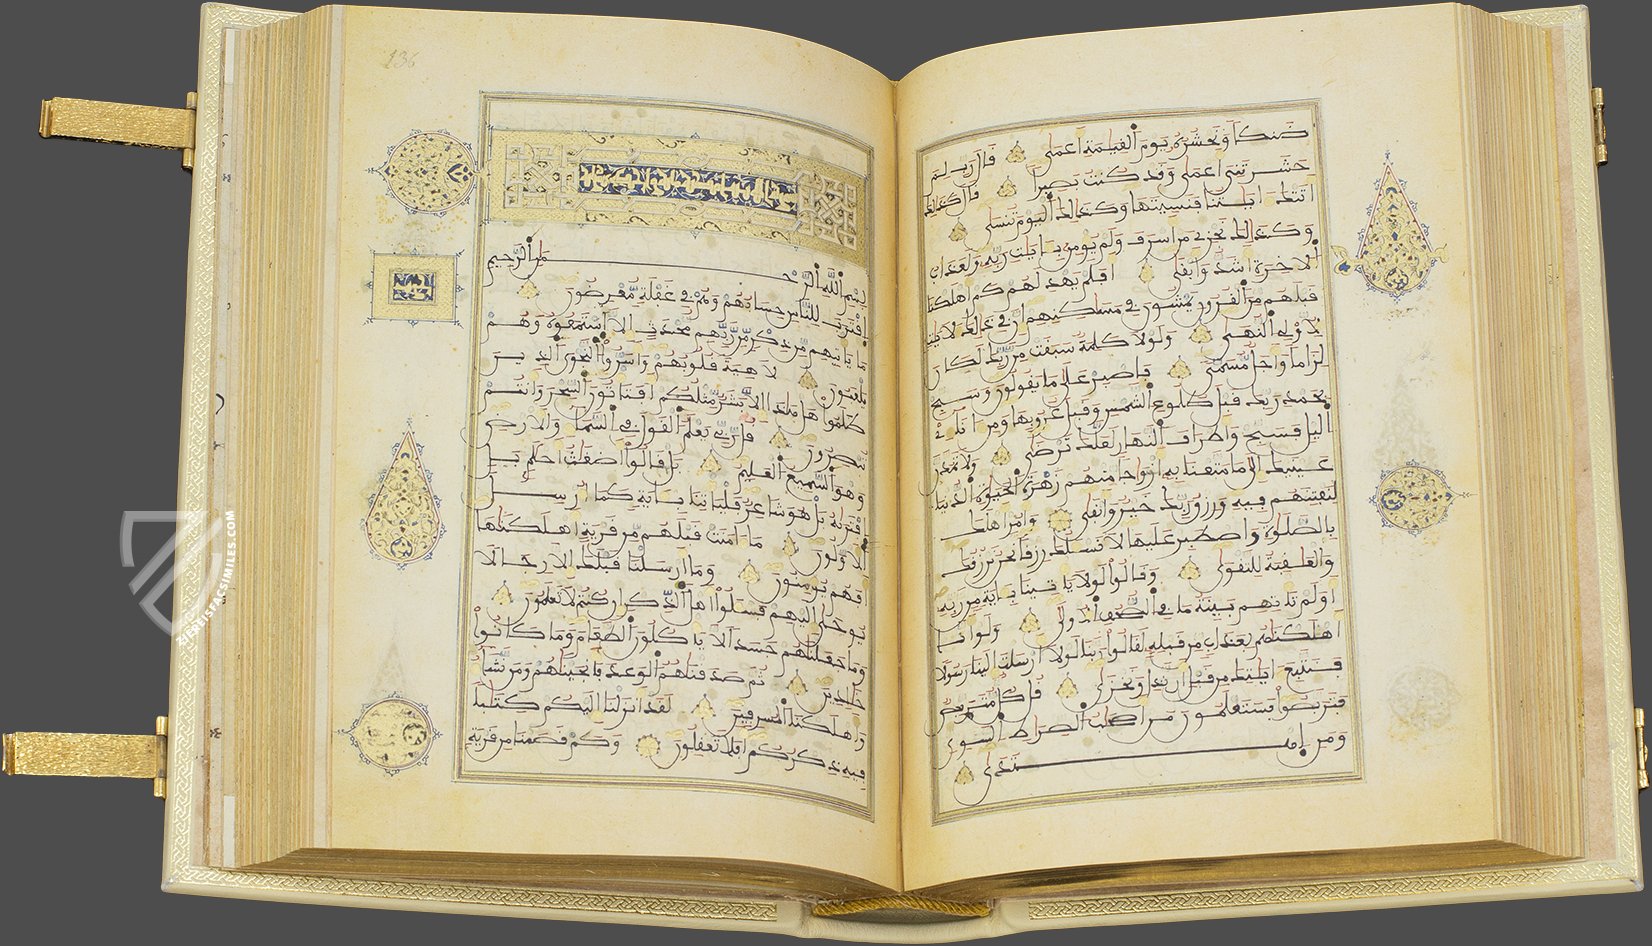 ضنكا ونحشره يوم القيمة اعمى قال رب لم
حشرتني اعمى وقد كنت بصيرا قال كذلك
اتتك ءايتنا فنسيتها وكذلك اليوم تنسى
وكذلك نجزي من اسرف ولم يومن بـايت ربه ولعذاب
الاخرة اشد وابقى افلم يهد لهم كم اهلكنا
قبلهم من القرون يمشون في مسكنهم ان في ذلك لايت
لاولي النهى ولولا كلمة سبقت من ربك لكان
لزاما واجل مسمى فاصبر على ما يقولون وسبح
بحمد ربك قبل طلوع الشمس وقبل غروبها ومن اناءي
اليل فسبح واطراف النهار لعلك ترضى ولا تمدن
عينيك الى ما متعنا به ازوجا منهم زهرة الحيوة الدنيا
لنفتنهم فيه ورزق ربك خير وابقى وامر اهلك
بالصلوة واصطبر عليها لا نسلك رزقا نحن نرزقك
والعقبة للتقوى وقالوا لولا ياتينا بـاية من ربه
اولم تاتهم بينة ما في الصحف الاولى ولو انا
اهلكنهم بعذاب من قبله لقالوا ربنا لولا ارسلت الينا رسولا
فنتبع ءايتك من قبل ان نذل ونخزى قل كل متربص
فتربصوا فستعلمون من اصحب الصراط السوي
ومن اهتدى
136
بسم الله الرحمن الرحيم
اقترب للناس حسابهم وهم في غفلة معرضون
ما ياتيهم من ذكر من ربهم محدث الا استمعوه وهم
يلعبون لاهية قلوبهم واسروا النجوى الذين
ظلموا هل هذا الا بشر مثلكم افتاتون السحر وانتم
تبصرون قل ربي يعلم القول في السماء والارض
وهو السميع العليم بل قالوا اضغث احلم بل
افتريه بل هو شاعر فلياتنا بـاية كما ارسل
الاولون ما ءامنت قبلهم من قرية اهلكنها
افهم يومنون وما ارسلنا قبلك الا رجالا
يوحى اليهم فسـلوا اهل الذكر ان كنتم لا تعلمون
وما جعلنهم جسدا لا ياكلون الطعام وما كانوا
خلدين ثم صدقنهم الوعد فانجينهم ومن نشاء
واهلكنا المسرفين لقد انزلنا اليكم كتبا
فيه ذكركم افلا تعقلون وكم قصمنا من قرية
ZIEREISFACSIMILES.COM